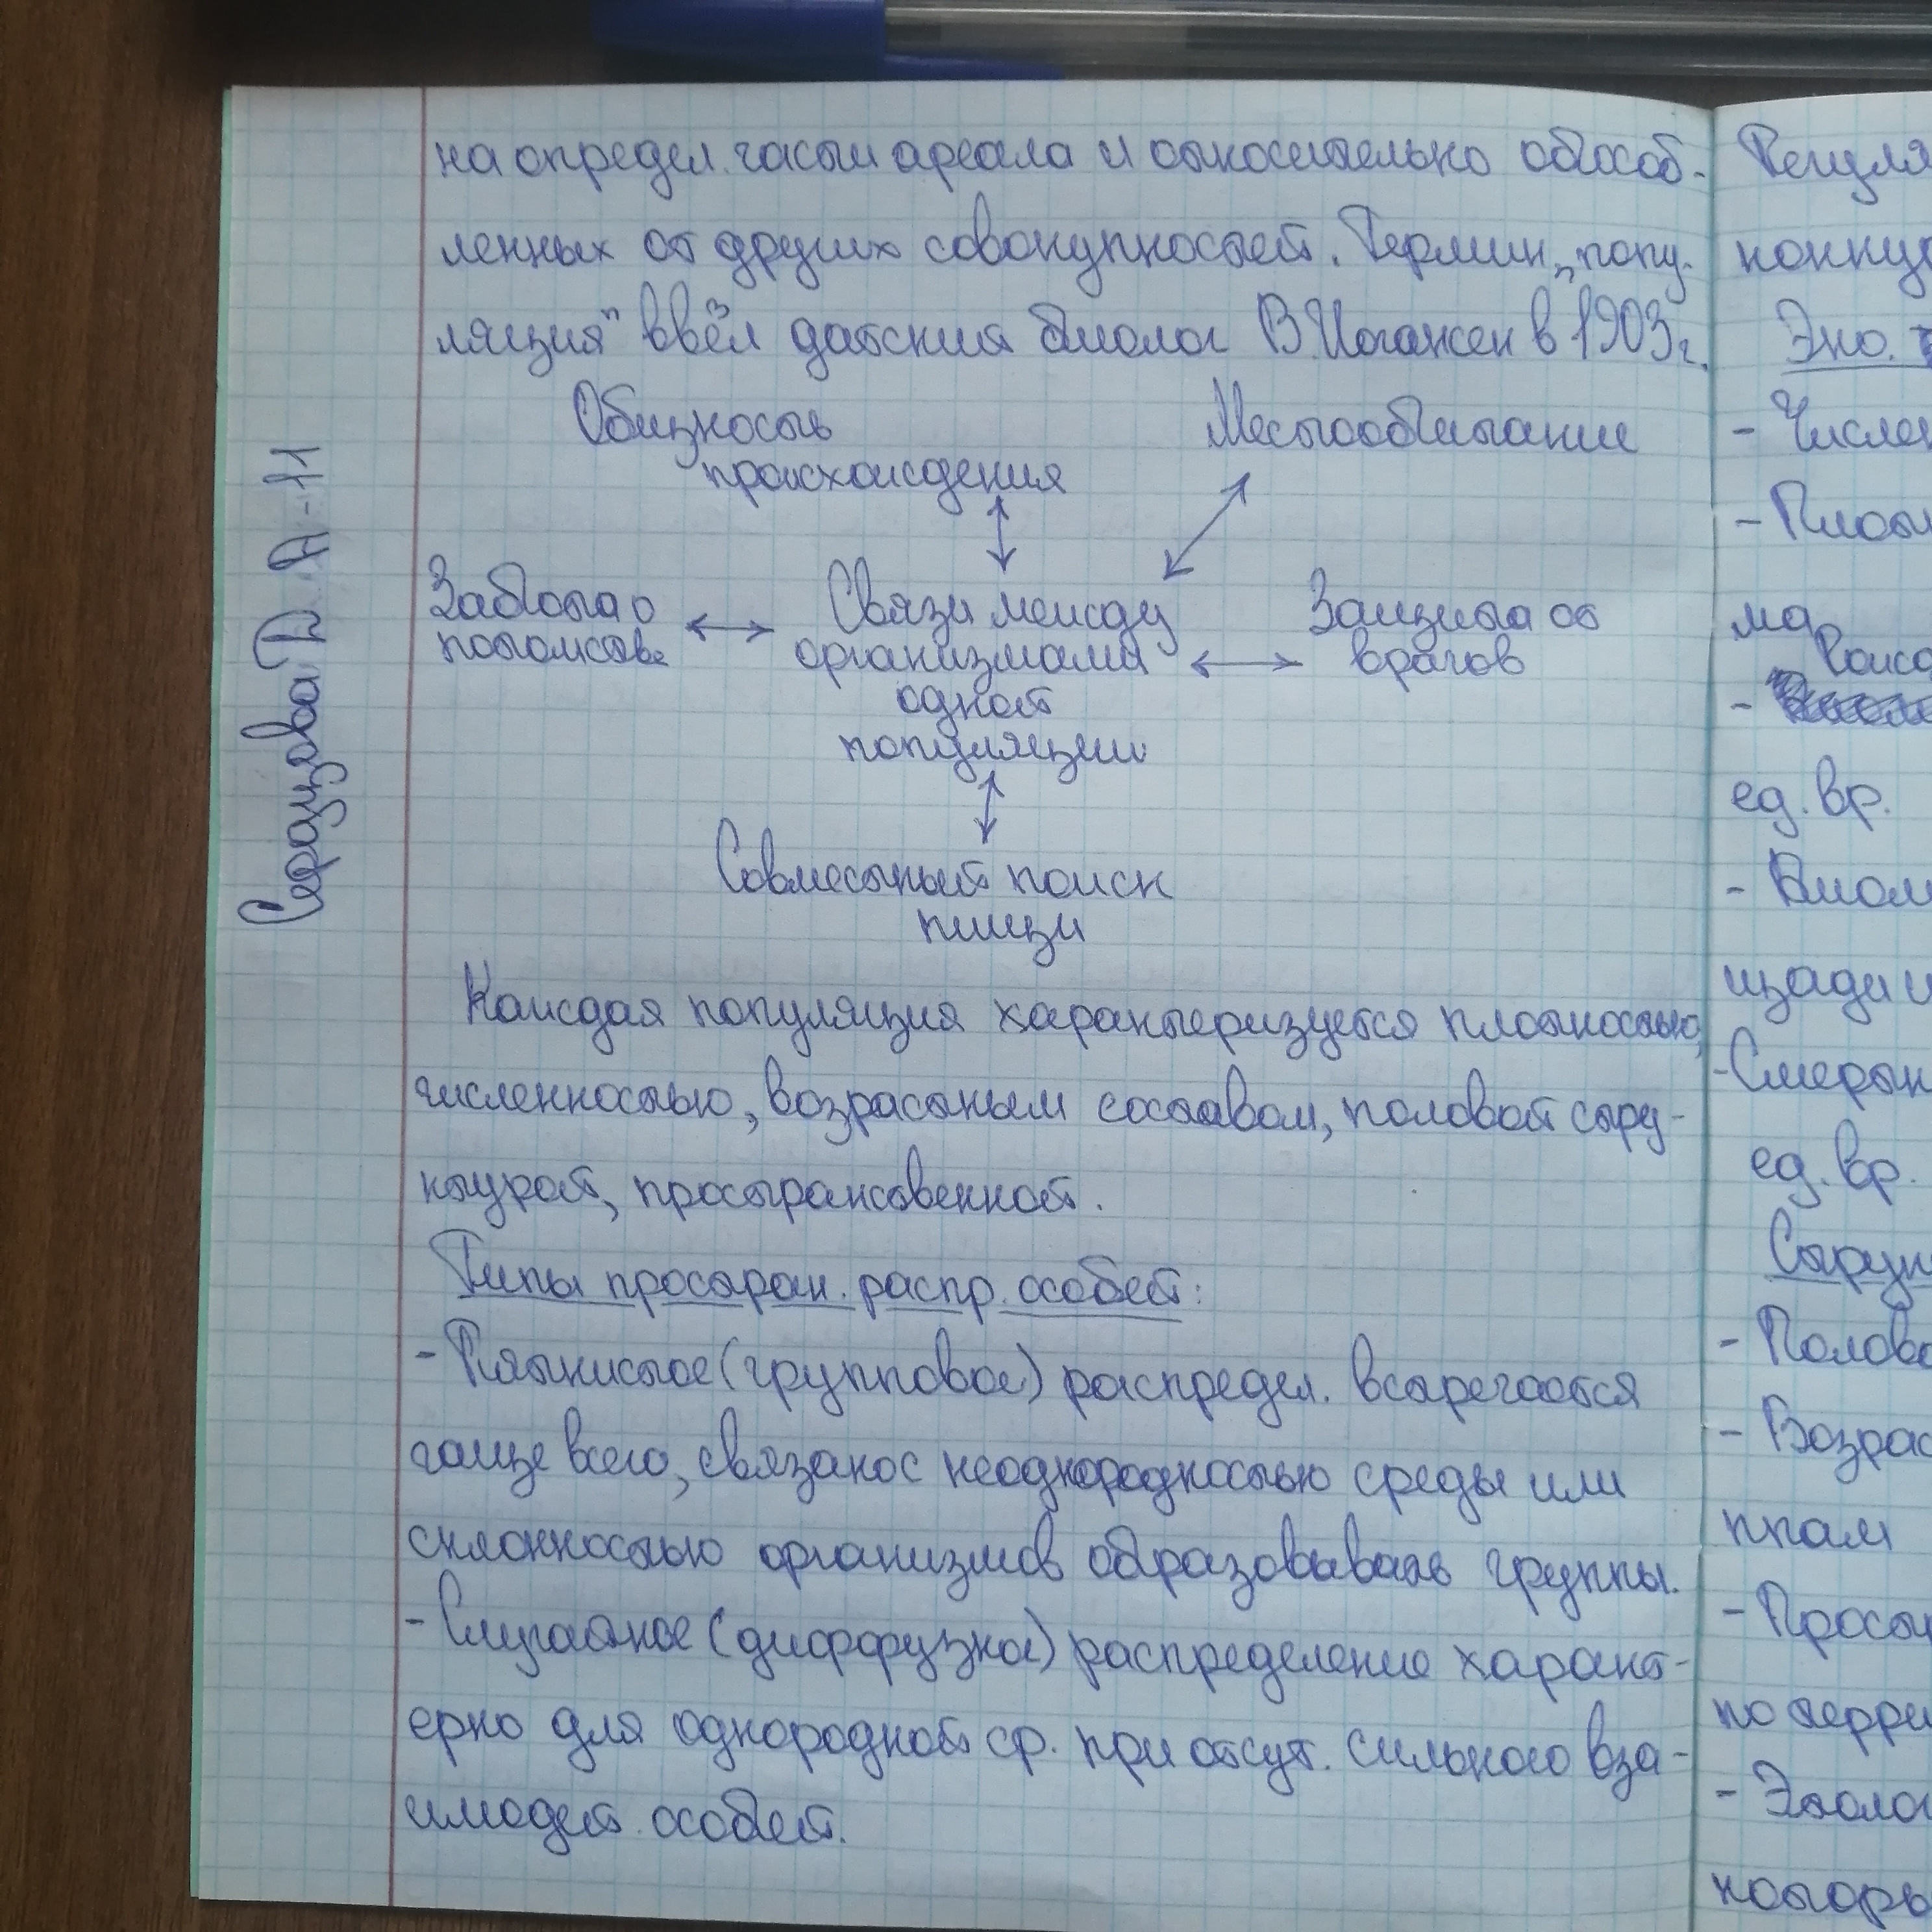 на определ. части ареала и относительно обособ-
ленных от других совокупностей. Термин „попу-
ляция" ввёл датский биолог В.Иогансен в 1903г.
Общность
происхождения
Местообитание
Забота о
потомстве
Связи между
организмами
одной
популяции
Защита от
врагов
Совместный поиск
пищи
Каждая популяция характеризуется плотностью,
численностью, возрастным составом, половой стру-
ктурой, пространственной.
Типы простран. распр. особей:
- Пятнистое (групповое) распредел. встречается
чаще всего, связано с неоднородностью среды или
склонностью организмов образовывать группы.
- Случайное (диффузное) распределение характ-
ерно для однородной ср. при отсут. сильного вза-
имодей. особей.
А-11
Эко.
- Числен
ма
ед. вр.
щади и
ед. вр.
- Полово
- Возрас
ппам
по терри